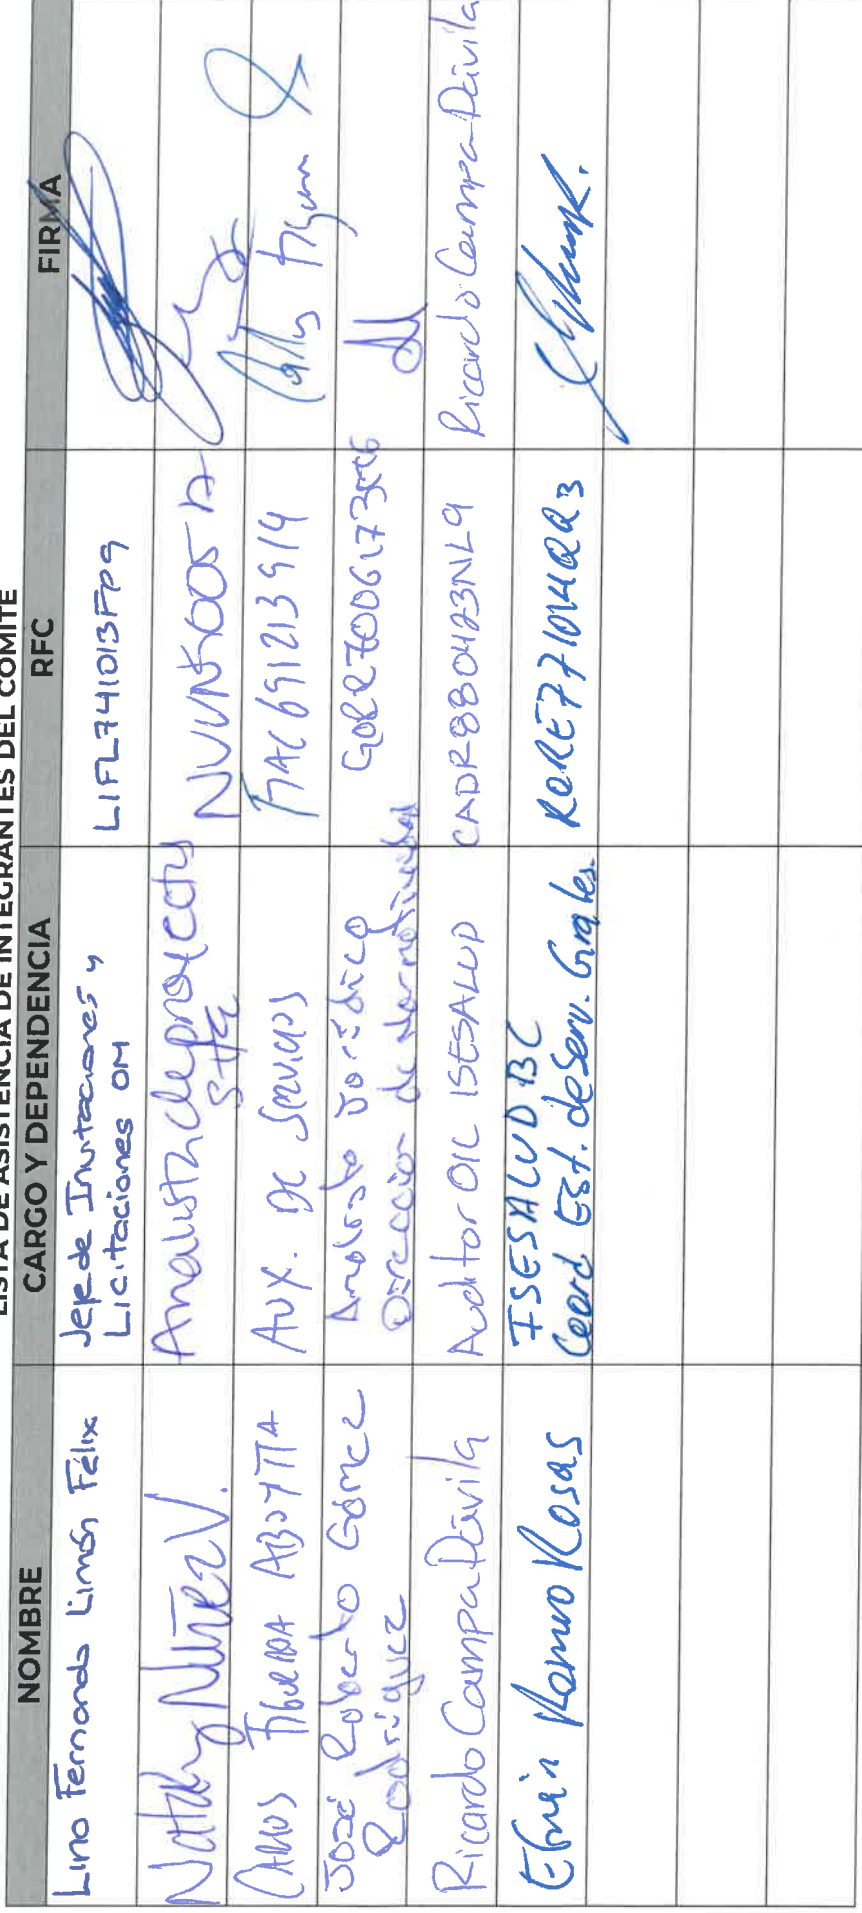 LISTA DE ASISTENCIA DE INTEGRANTES DEL COMITÉ
NOMBRE CARGO Y DEPENDENCIA RFC FIRMA
Lino Fernando Limón Félix
Jefe de Invitaciones y
Licitaciones OM
LIFL741013FP9
Nataly Núñez V.
Analista de proyectos
CARLOS FIGUEROA ABOYTIA
AUX. DE SERVICIOS
FIAC691213914
José Roberto Gómez
Rodríguez
Analista Jurídico
Dirección de Normatividad
Ricardo Campa Dávila
Auditor OIC ISESALUD
CADR880423NL9
Ricardo Campa Dávila
Efraín Romero Rosas
ISESALUD BC
Coord Est. de Serv. Grales.